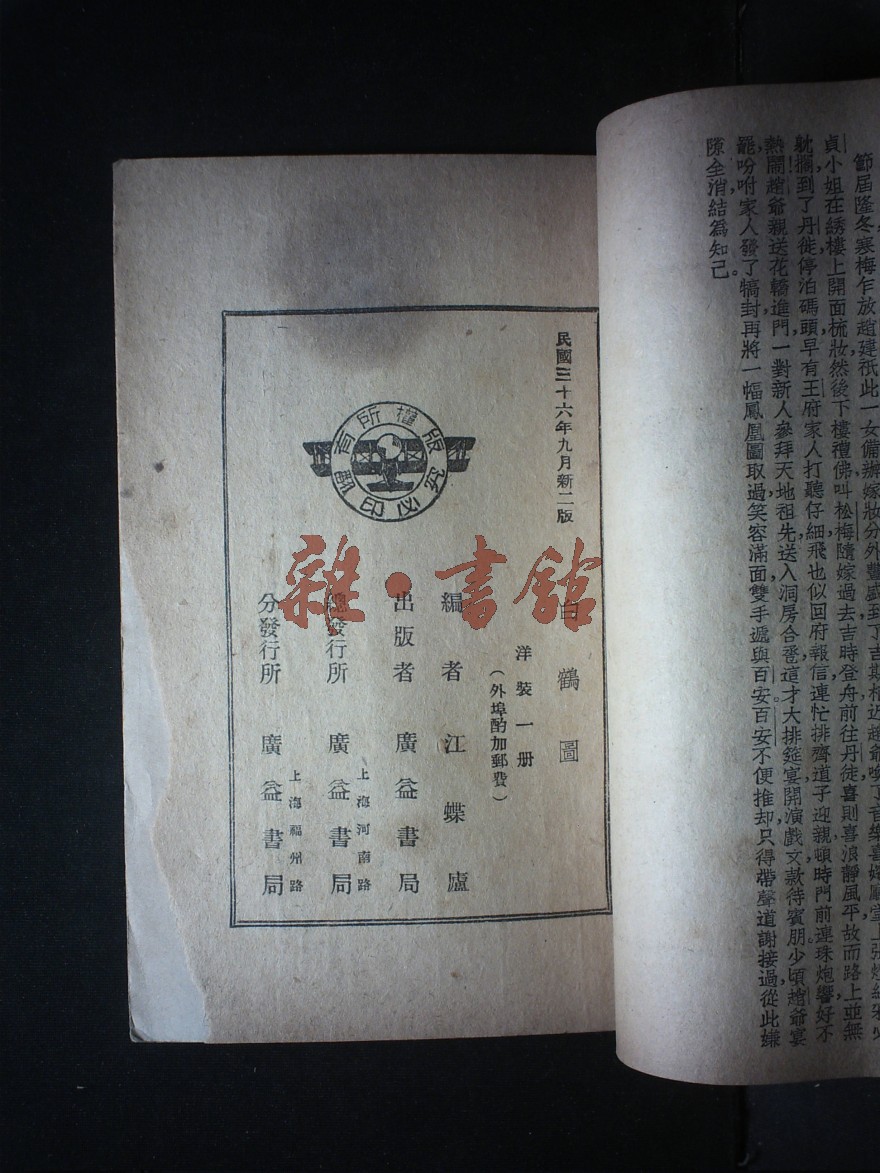 節屆隆冬寒梅乍放趙建祇此一女備辦嫁妝分外豐盛到了吉期相近趙爺喚了音樂喜嬪鳳堂上張燈結
貞小姐在綉樓上開面梳妝然後下樓禮佛叫松梅隨嫁過去吉時登舟前往丹徒喜則喜浪靜風平故而路上並無
躭擱到了丹徒停泊碼頭早有王府家人打聽仔細飛也似回府報信連忙排齊道子迎親頓時門前連珠炮響好不
熱鬧趙爺親送花轎進門一對新人參拜天地祖先送入洞房合巹這才大排筵宴開演戲文款待賓朋少頃趙爺宴
罷吩咐家人發了犒封再將一幅鳳凰圖取過笑容滿面雙手遞與百安百安不便推却只得帶聲道謝接過從此嫌
隙全消結爲知己。
民國三十六年九月新二版
白鶴圖
洋裝一册
(外埠酌加郵費)
編者 江蝶廬
出版者 廣益書局
上海河南路
總發行所 廣益書局
上海福州路
分發行所 廣益書局
版權所有
翻印必究
雜·書館